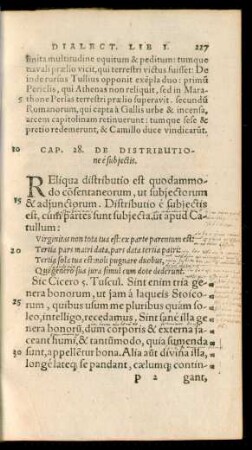 DIALECT. LIB I. 227
finita multitudine equitum & peditum: tumque
navali prælio vicit, qui terrestri victus fuisset: De
inde rursus Tullius opponit exẽpla duo: primũ
Periclis, qui Athenas non reliquit, sed in Mara-
thone Persas terrestri prælio superavit. secundũ
Romanorum, qui capta à Gallis urbe & incensa,
arcem capitolinam retinuerunt: tumque sese &
pretio redemerunt, & Camillo duce vindicarũt.
10 CAP. 28. DE DISTRIBUTIO-
ne è subjectis.
REliqua distributio est quodammo-
do cõsentaneorum, ut subjectorum
15 & adjunctorum. Distributio è subjectis
est, cum partes sunt subjecta. ut apud Ca-
tullum:
Virginitas non tota tua est: ex parte parentum est:
Tertia pars matri data, pars data tertia patri:
20 Tertia sola tua est: noli pugnare duobus,
Qui genero sua jura simul cum dote dederunt.
Sic Cicero 5. Tuscul. Sint enim tria ge-
nera bonorum, ut jam à laqueis Stoico-
25 rum, quibus usum me pluribus quàm so-
leo, intelligo, recedamus. Sint sane illa ge-
nera bonorũ, dum corporis & externa ja-
ceant humi, & tantũmodo, quia sumenda
30 sunt, appellẽtur bona. Alia aũt divina illa,
longè latéq; se pandant, cælumq; contin-
p 2 gant,